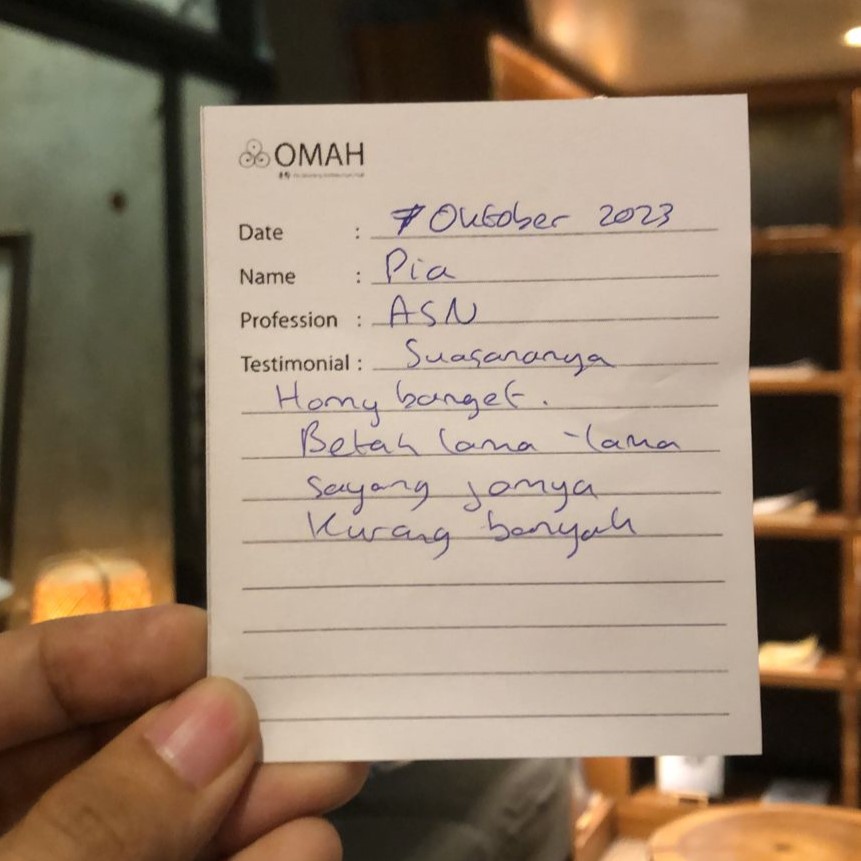 OMAH
Date : 7 Oktober 2023
Name : Pia
Profession : ASN
Testimonial : Suasananya
Homy banget.
Betah lama-lama
Sayang jamnya
Kurang banyak